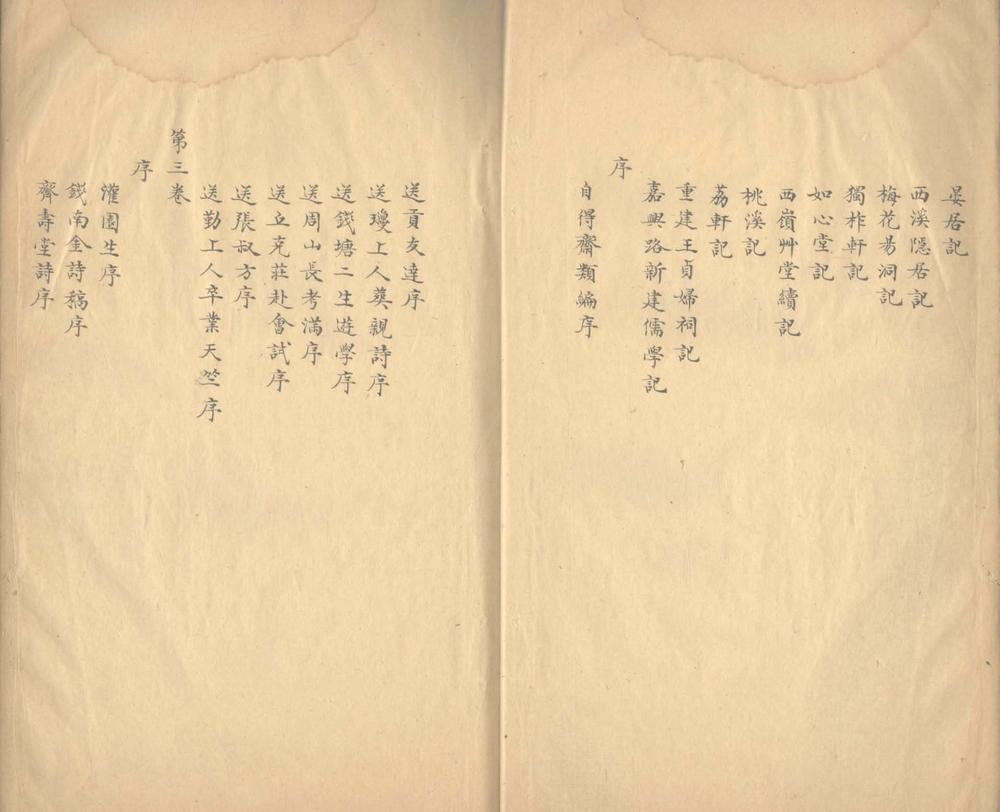 晏居記
西溪隱居記
梅花易洞記
獨柞軒記
如心堂記
西嶺艸堂續記
桃溪記
荔軒記
重建王貞婦祠記
嘉興路新建儒學記
序
自得齋類編序
送貢友達序
送瓊上人葬親詩序
送錢塘二生遊學序
送周山長考滿序
送立克莊赴會試序
送張叔方序
送勤上人卒業天竺序
第三卷
序
灌園生序
錢南金詩稿序
齊壽堂詩序